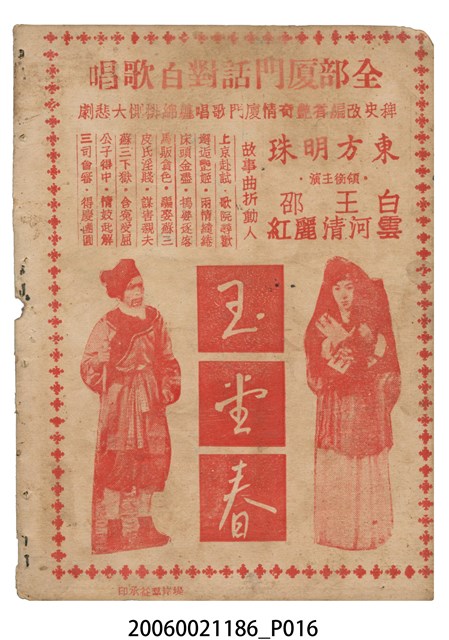 全部厦門話對白歌唱
稗史改編香艷奇情廈門歌唱纏綿悱惻大悲劇
東方明珠
·領銜主演·
白雲
王河清
邵麗紅
故事曲折動人
上京赴試·歌院尋歡
邂逅艷遇·兩情繾綣
床頭金盡·鴇婆逐落
馬販貪色·騙娶蘇三
皮氏淫賤·謀害親夫
蘇三下獄·含冤受屈
公子得中·起解
三司會審·得慶團圓
玉堂春
承印
20060021186_P016